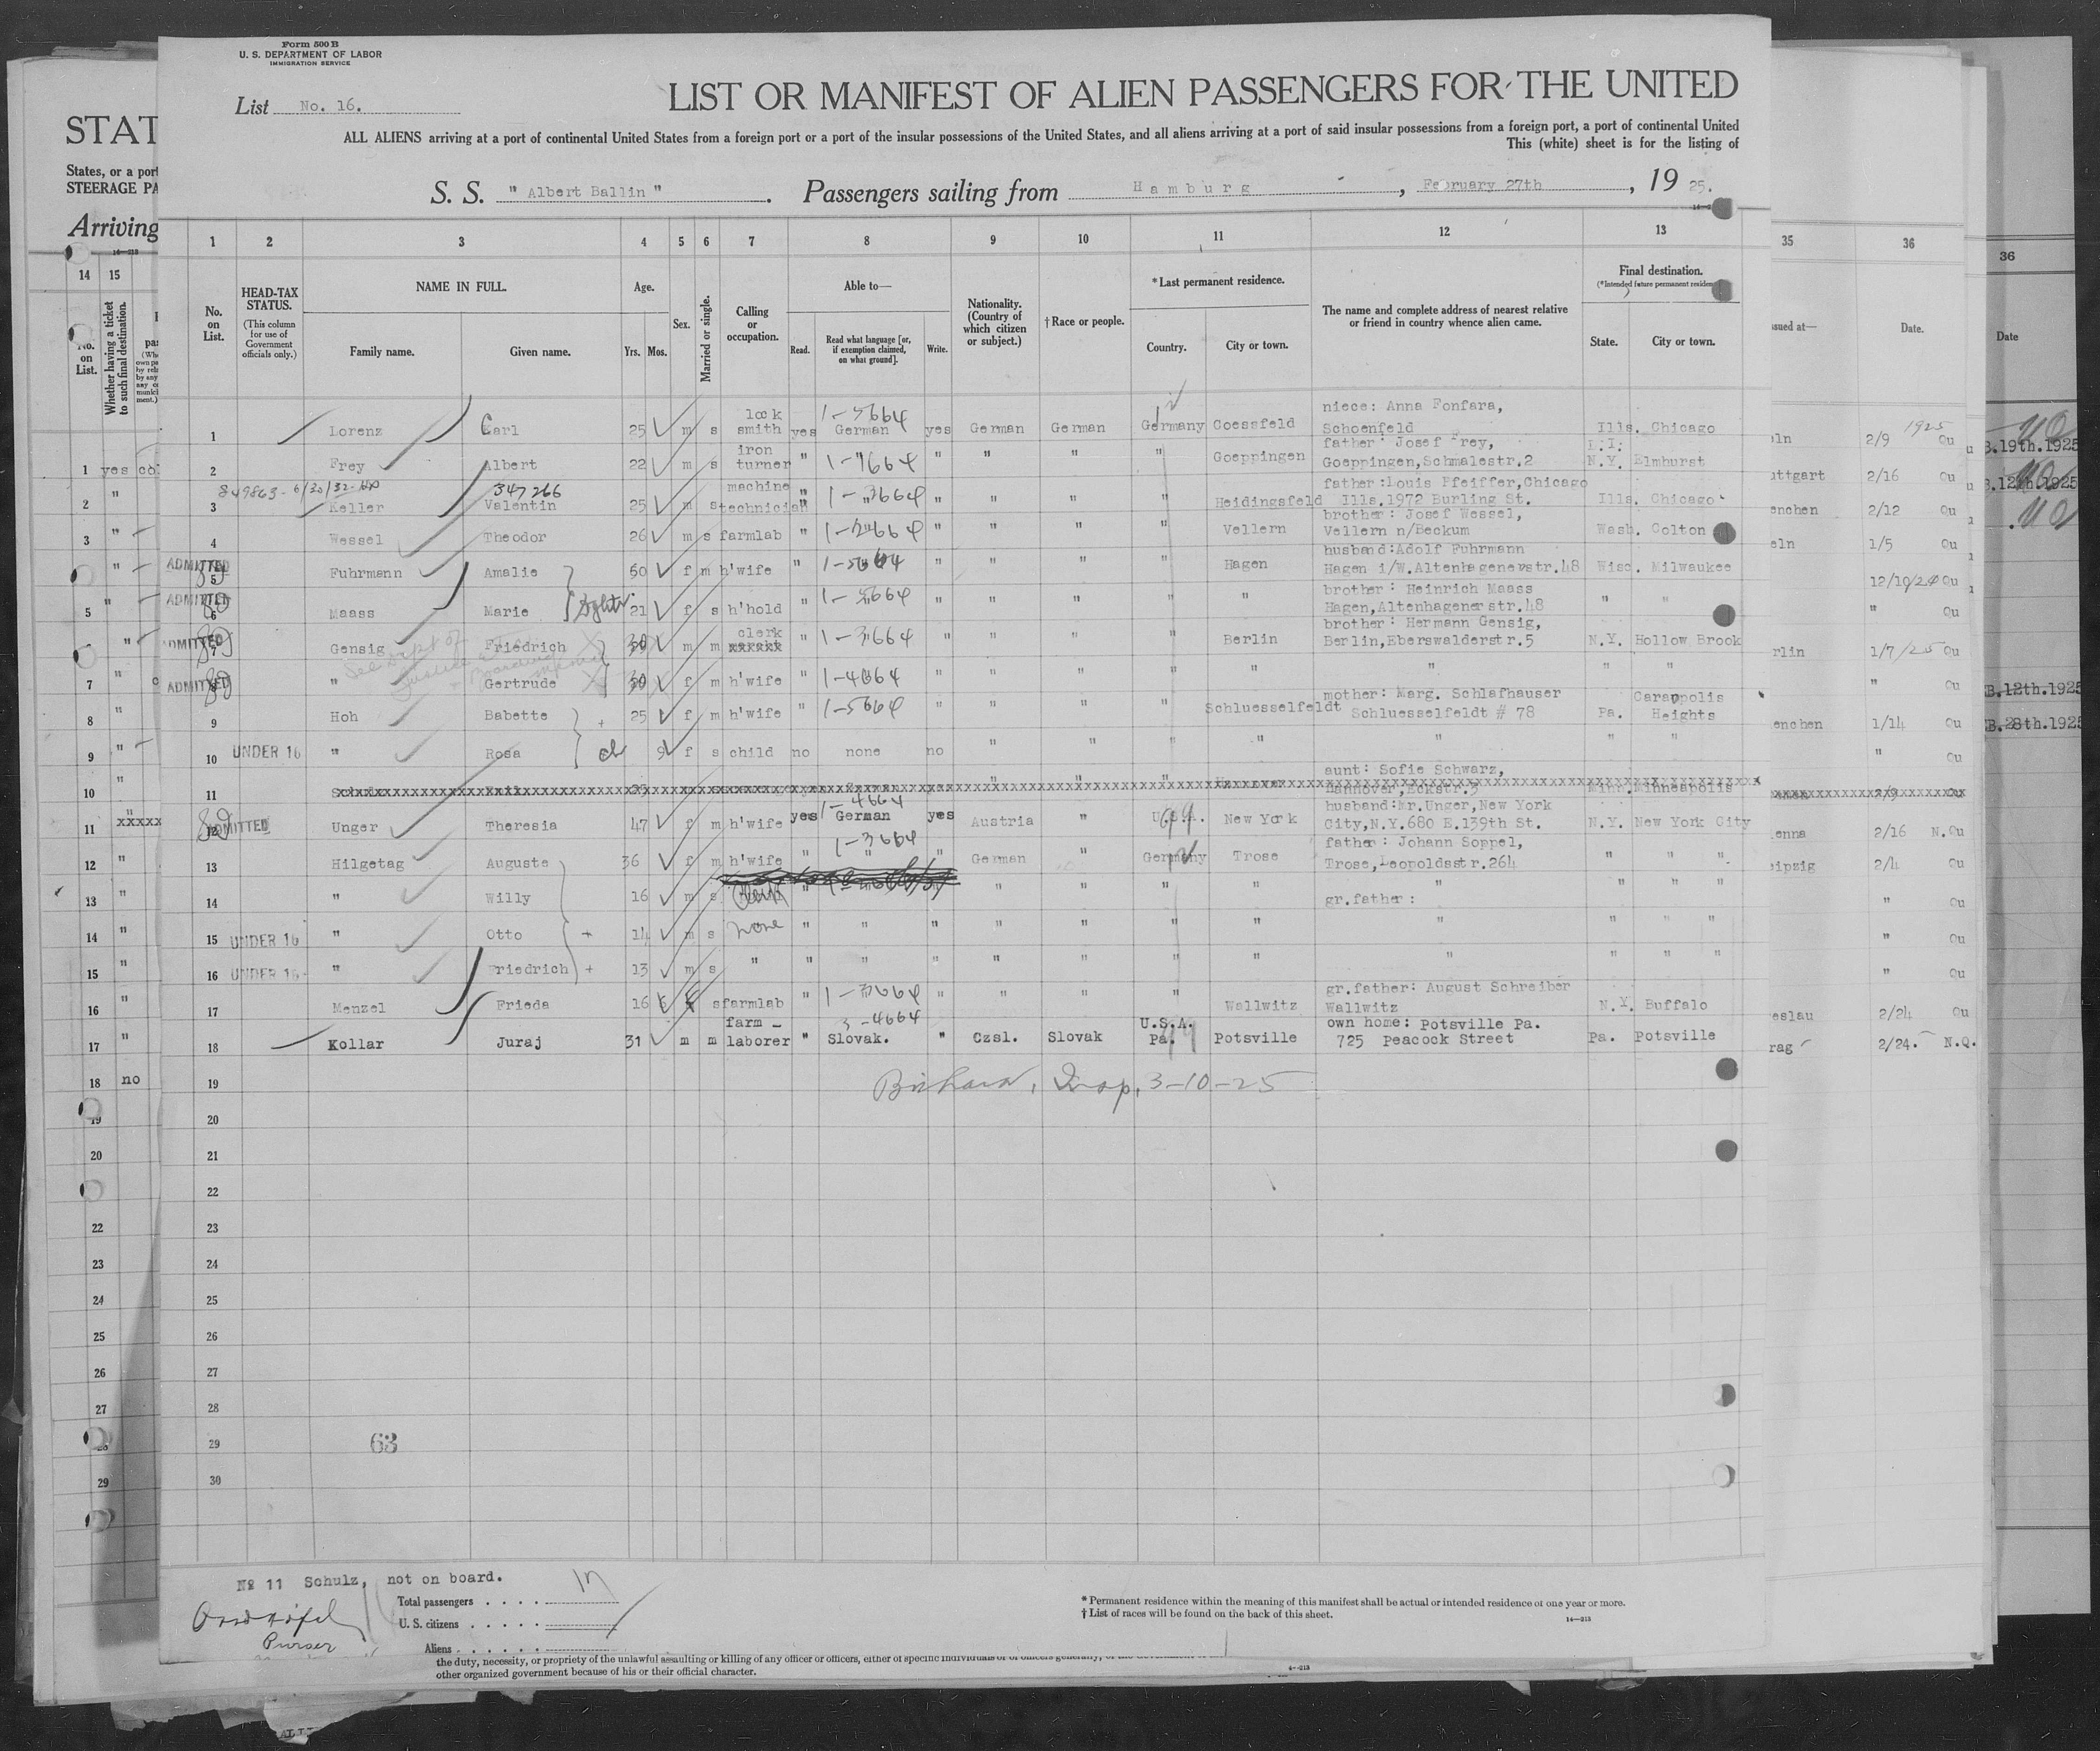 Form 500 B
U. S. DEPARTMENT OF LABOR
IMMIGRATION SERVICE
List No. 16.
LIST OR MANIFEST OF ALIEN PASSENGERS FOR THE UNITED
ALL ALIENS arriving at a port of continental United States from a foreign port or a port of the insular possessions of the United States, and all aliens arriving at a port of said insular possessions from a foreign port, a port of continental United
This (white) sheet is for the listing of
S. S. " Albert Ballin " . Passengers sailing from Hamburg , February 27th , 19 25.
STAT
States, or a port
STEERAGE PA
Arriving
1 2 3 4 5 6 7 8 9 10 11 12 13
14 15 35 36 36
No. on List.
HEAD-TAX STATUS.
(This column for use of Government officials only.)
NAME IN FULL.
Family name. Given name.
Age.
Yrs. Mos.
Sex.
Married or single.
Calling or occupation.
Able to—
Read. Read what language [or, if exemption claimed, on what ground]. Write.
Nationality. (Country of which citizen or subject.)
†Race or people.
*Last permanent residence.
Country. City or town.
The name and complete address of nearest relative or friend in country whence alien came.
Final destination.
(*Intended future permanent residence)
State. City or town.
Whether having a ticket to such final destination.
Date. Date
1 Lorenz Carl 25 m s lock smith yes 1-5664 German yes German German Germany Coessfeld niece: Anna Fonfara, Schoenfeld Ills. Chicago 2/9 1925 Qu
2 Frey Albert 22 m s iron turner " 1-1664 " " " " Goeppingen father: Josef Frey, Goeppingen,Schmalestr.2 L.I. N.Y. Elmhurst 2/16 Qu
849863-6/30/32- 347266
3 Keller Valentin 25 m s machine technician " 1-3664 " " " " Heidingsfeld father:Louis Pfeiffer,Chicago Ills.1972 Burling St. Ills. Chicago 2/12 Qu
4 Wessel Theodor 26 m s farmlab " 1-2664 " " " " Vellern brother: Josef Wessel, Vellern n/Beckum Wash. Colton 1/5 Qu
ADMITTED 5 Fuhrmann Amalie 50 f m h'wife " 1-5664 " " " " Hagen husband:Adolf Fuhrmann Hagen i/W.Altenhagenerstr.48 Wisc. Milwaukee 12/10/24 Qu
ADMITTED 6 Maass Marie 21 f s h'hold " 1-5664 " " " " " brother: Heinrich Maass Hagen,Altenhagenerstr.48 " " " Qu
ADMITTED 7 Gensig Friedrich 30 m m clerk xxxxxx " 1-3664 " " " " Berlin brother: Hermann Gensig, Berlin,Eberswalderstr.5 N.Y. Hollow Brook 1/7/25 Qu
ADMITTED 8 " Gertrude 30 f m h'wife " 1-4664 " " " " " " " " " Qu
9 Hoh Babette 25 f m h'wife " 1-5664 " " " " Schluesselfeldt mother: Marg. Schlafhauser Schluesselfeldt # 78 Pa. Carappolis Heights 1/14 Qu
10 UNDER 16 " Rosa ch 9 f s child no none no " " " " " " " " Qu
11 aunt: Sofie Schwarz, Hannover,Eckstr.3 Minn. Minneapolis
12 ADMITTED Unger Theresia 47 f m h'wife yes 1-4664 German yes Austria " U.S.A. New York husband:Mr.Unger,New York City,N.Y.680 E.139th St. N.Y. New York City 2/16 N.Qu
13 Hilgetag Auguste 36 f m h'wife " 1-3664 " " German " Germany Trose father: Johann Soppel, Trose,Leopoldsstr.264 " " " 2/4 Qu
14 " Willy 16 m s " " " " " " gr.father: " " " " " Qu
15 UNDER 16 " Otto + 14 m s none " " " " " " " " " " " " Qu
16 UNDER 16 " Friedrich + 13 m s " " " " " " " " " " " " " Qu
17 Menzel Frieda 16 f s farmlab " 1-3664 " " " " Wallwitz gr.father: August Schreiber Wallwitz N.Y. Buffalo 2/24 Qu
18 Kollar Juraj 31 m m farm - laborer " 3-4664 Slovak. " Czsl. Slovak U.S.A. Pa. Potsville own home: Potsville Pa. 725 Peacock Street Pa. Potsville 2/24. N.Q.
19 3-10-25
20
21
22
23
24
25
26
27
28
29 63
30
№ 11 Schulz, not on board.
Purser
Total passengers . . . .
U. S. citizens . . . . .
Aliens . . . . . .
* Permanent residence within the meaning of this manifest shall be actual or intended residence of one year or more.
† List of races will be found on the back of this sheet.
14—213
the duty, necessity, or propriety of the unlawful assaulting or killing of any officer or officers, either of specific individuals or of officers generally, of the
other organized government because of his or their official character.